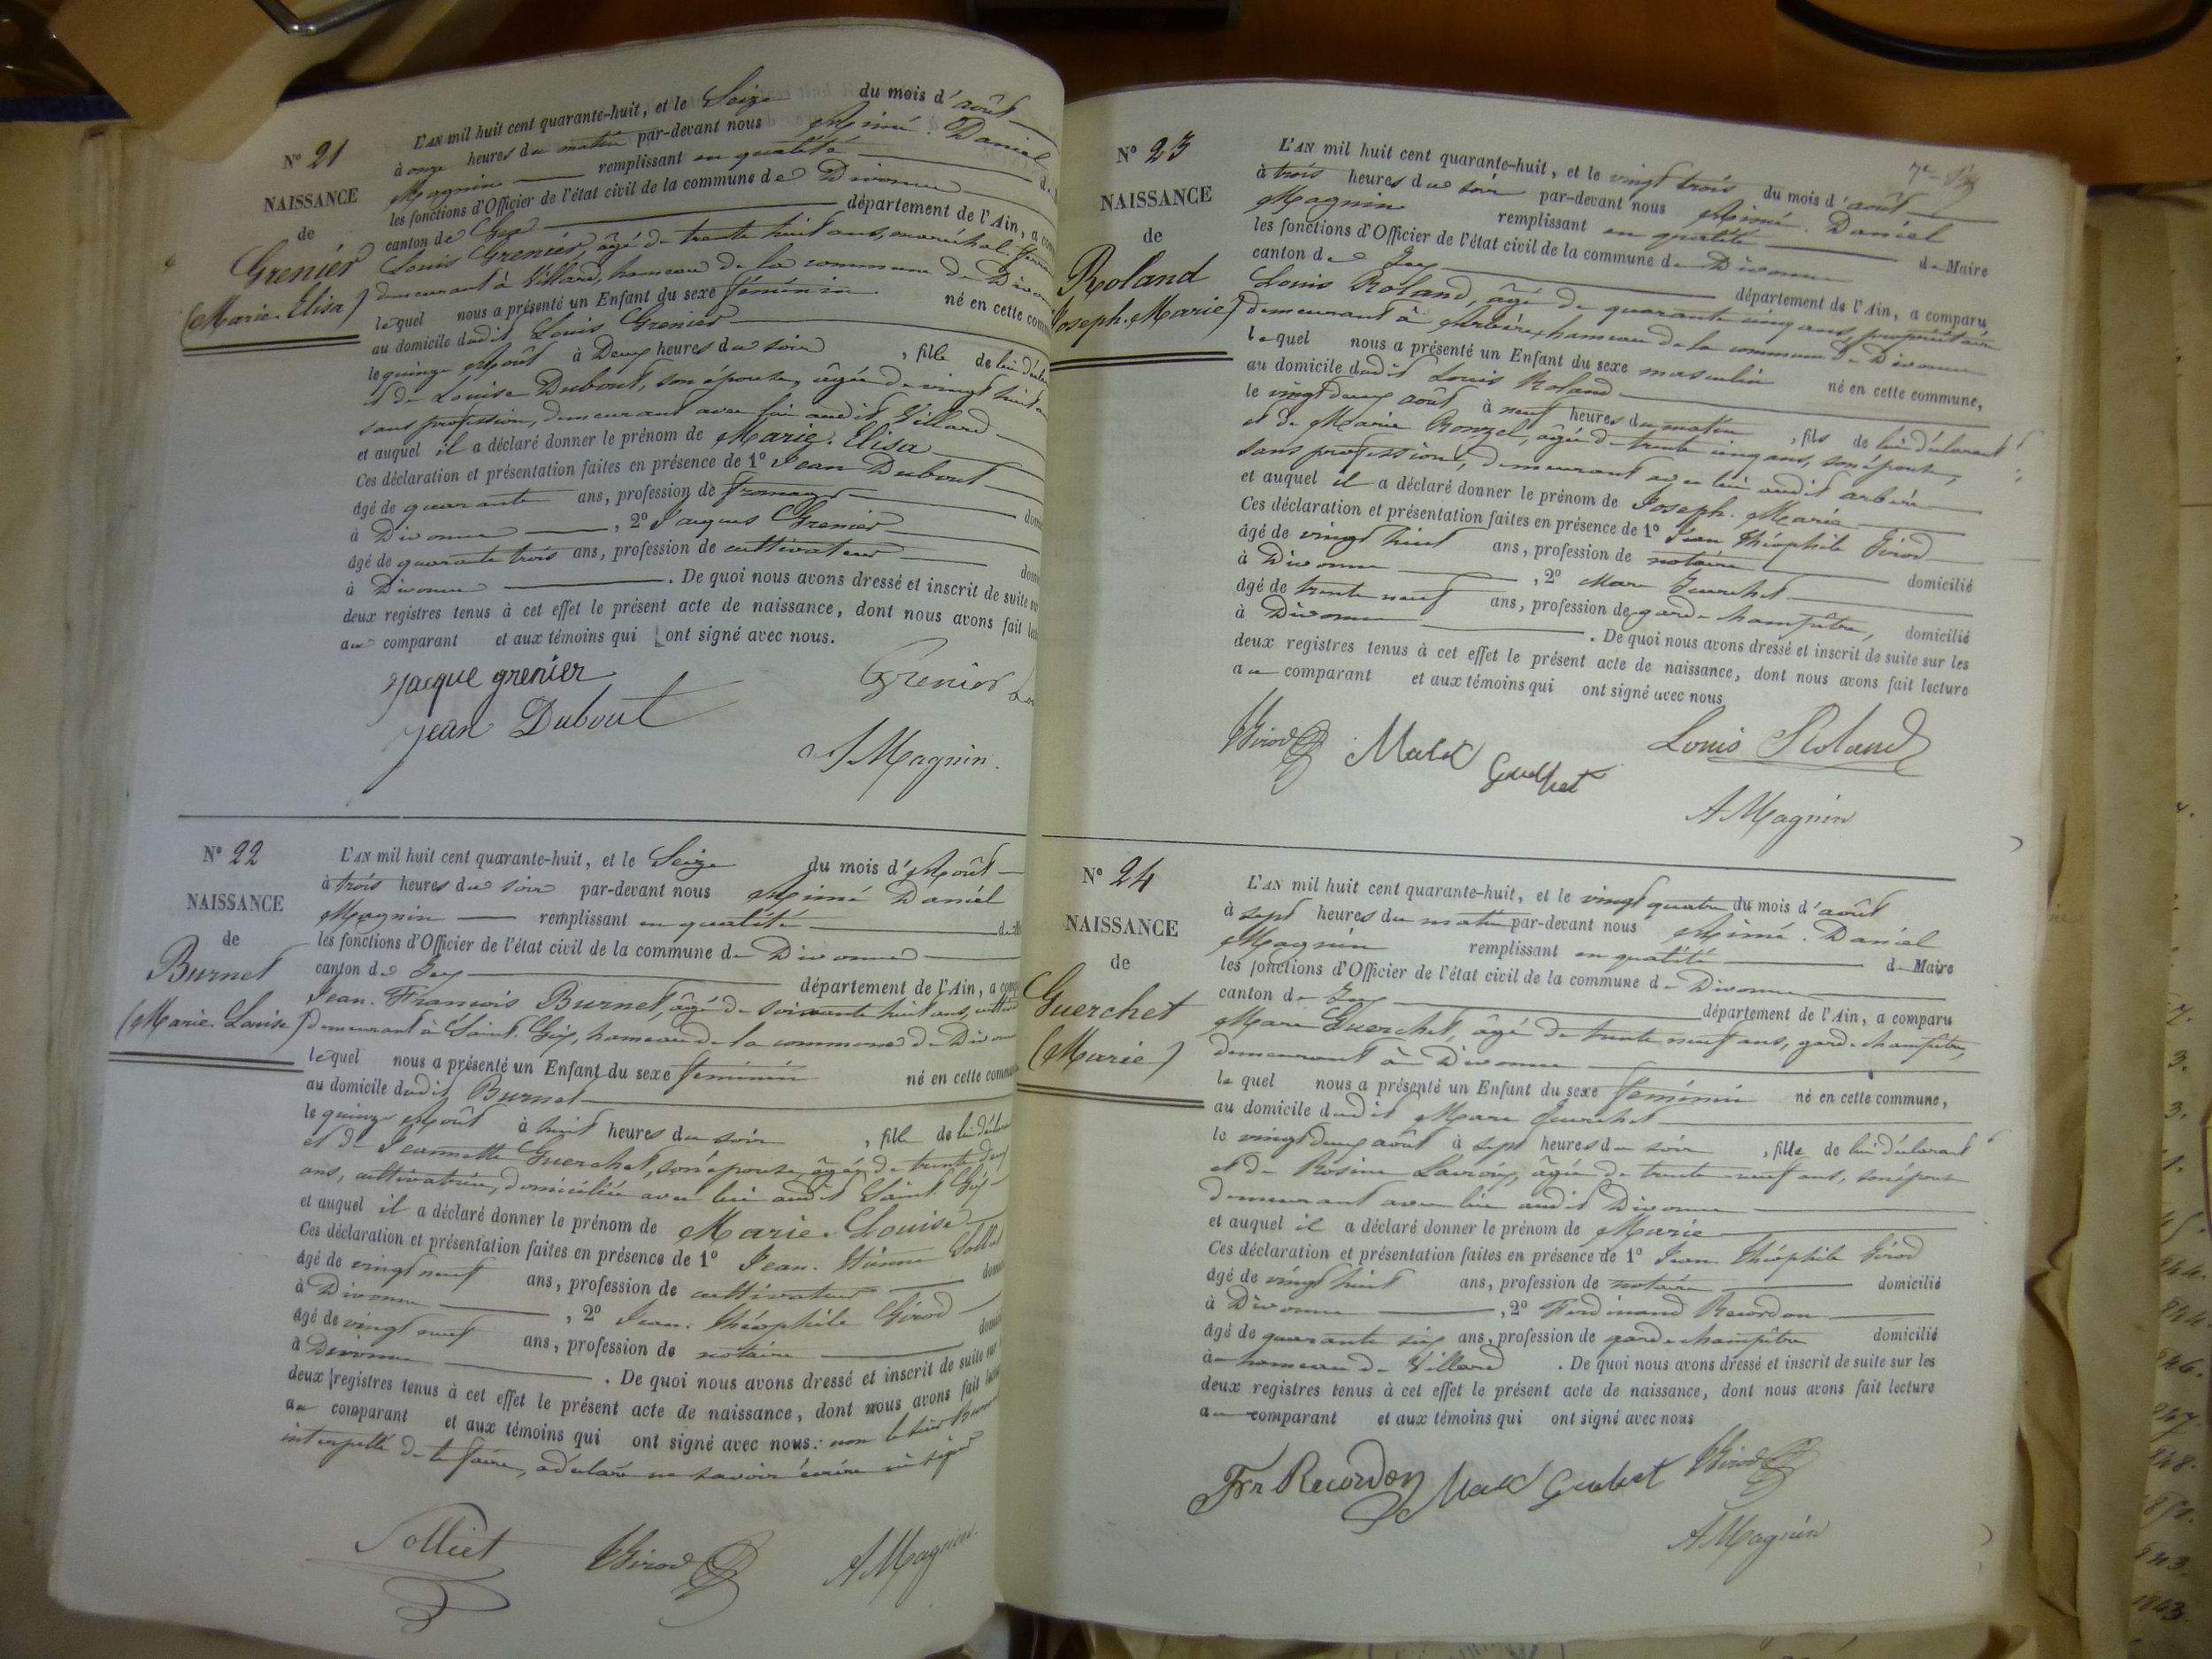 N° 21
NAISSANCE
de
Grenier
(Marie-Elisa)
L'AN mil huit cent quarante-huit, et le Seize du mois d'août
à onze heures du matin par-devant nous Aimé. Daniel
Magnin remplissant en qualité d
les fonctions d'Officier de l'état civil de la commune de Divonne
canton de Gex département de l'Ain, a com
Louis Grenier, âgé de trente huit ans, maréchal
demeurant à Villard, hameau de la commune de Divon
lequel nous a présenté un Enfant du sexe féminin né en cette com
au domicile dudit Louis Grenier
le quinze Août à Deux heures du soir, fille de lui décla
et de Louise Dubout, son épouse, âgée de vingt huit
sans profession, demeurant avec lui audit Villard
et auquel il a déclaré donner le prénom de Marie. Elisa
Ces déclaration et présentation faites en présence de 1° Jean Dubout
âgé de quarante ans, profession de fromager dom
à Divonne, 2° Jaques Grenier
âgé de quarante trois ans, profession de cultivateur dom
à Divonne. De quoi nous avons dressé et inscrit de suite su
deux registres tenus à cet effet le présent acte de naissance, dont nous avons fait lec
au comparant et aux témoins qui ont signé avec nous.
jacque grenier
Grenier Lou
jean Dubout
A Magnin.
N° 22
NAISSANCE
de
Burnet
(Marie-Louise)
L'AN mil huit cent quarante-huit, et le Seize du mois d'Août
à trois heures du soir par-devant nous Aimé Daniel
Magnin remplissant en qualité d
les fonctions d'Officier de l'état civil de la commune de Divonne
canton de Gex département de l'Ain, a comp
Jean-François Burnet, âgé de soixante huit ans,
demeurant à Saint. Gix, hameau de la commune de Divonn
lequel nous a présenté un Enfant du sexe féminin né en cette commu
au domicile dudit Burnet
le quinze Août à huit heures du soir, fille de lui décla
et de Jeannette Guerchet, son épouse, âgée de trente deux
ans, cultivatrice, domiciliée avec lui audit Saint Gix
et auquel il a déclaré donner le prénom de Marie. Louise
Ces déclaration et présentation faites en présence de 1° Jean. Etienne
âgé de vingt neuf ans, profession de cultivateur domi
à Divonne, 2° Jean. Théophile Girod
âgé de vingt neuf ans, profession de notaire domi
à Divonne. De quoi nous avons dressé et inscrit de suite sur
deux registres tenus à cet effet le présent acte de naissance, dont nous avons fait lectu
au comparant et aux témoins qui ont signé avec nous. non le
interpellé de le faire, a déclaré ne savoir écrire ni signer
Solliet Girod A Magnin.
N° 23
NAISSANCE
de
Roland
Joseph. Marie)
L'AN mil huit cent quarante-huit, et le vingt trois du mois d'août
à trois heures du soir par-devant nous Aimé. Daniel
Magnin remplissant en qualité de Maire
les fonctions d'Officier de l'état civil de la commune de Divonne
canton de Gex département de l'Ain, a comparu
Louis Roland, âgé de quarante cinq ans, propriétaire
demeurant à Arbère, hameau de la commune de Divonne
lequel nous a présenté un Enfant du sexe masculin né en cette commune,
au domicile dudit Louis Roland
le vingt deux août à neuf heures du matin, fils de lui déclarant
et de Marie Ronzel, âgée de trente cinq ans, son épouse,
sans profession, demeurant avec lui audit arbère
et auquel il a déclaré donner le prénom de Joseph. Marie
Ces déclaration et présentation faites en présence de 1° Jean Théophile Girod
âgé de vingt huit ans, profession de notaire domicilié
à Divonne, 2° Marc Guerchet
âgé de trente neuf ans, profession de garde champêtre, domicilié
à Divonne. De quoi nous avons dressé et inscrit de suite sur les
deux registres tenus à cet effet le présent acte de naissance, dont nous avons fait lecture
au comparant et aux témoins qui ont signé avec nous
Girod Louis Roland
A Magnin
N° 24
NAISSANCE
de
Guerchet
(Marie)
L'AN mil huit cent quarante-huit, et le vingt quatre du mois d'août
à sept heures du matin par-devant nous Aimé. Daniel
Magnin remplissant en qualité de Maire
les fonctions d'Officier de l'état civil de la commune de Divonne
canton de Gex département de l'Ain, a comparu
Marc Guerchet, âgé de trente neuf ans, garde champêtre,
demeurant à Divonne
lequel nous a présenté un Enfant du sexe féminin né en cette commune,
au domicile dudit Marc Guerchet
le vingt deux août à sept heures du soir, fille de lui déclarant
et de Rosine Lacroix, âgée de trente neuf ans, son épouse
demeurant avec lui audit Divonne
et auquel il a déclaré donner le prénom de Marie
Ces déclaration et présentation faites en présence de 1° Jean Théophile Girod
âgé de vingt huit ans, profession de notaire domicilié
à Divonne, 2° Ferdinand Recordon
âgé de quarante six ans, profession de garde champêtre domicilié
à hameau de Villard. De quoi nous avons dressé et inscrit de suite sur les
deux registres tenus à cet effet le présent acte de naissance, dont nous avons fait lecture
au comparant et aux témoins qui ont signé avec nous
Fr Recordon Girod
A Magnin